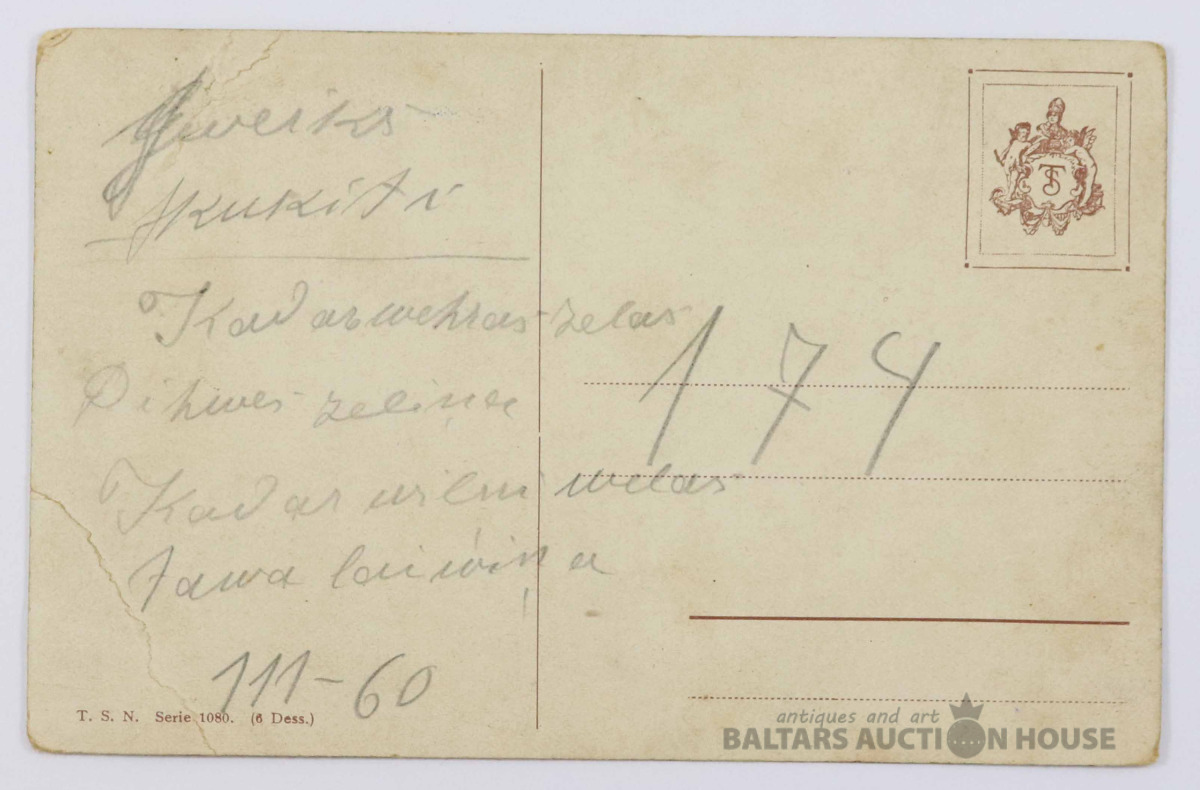 Sweiks
skukiti
Kad as wehras zelas
Pihwes zeliņa
Kad as wilni welas
tawa laiwiņa
111-60
174
T. S. N. Serie 1080. (6 Dess.)
TS
antiques and art
BALTARS AUCTION HOUSE